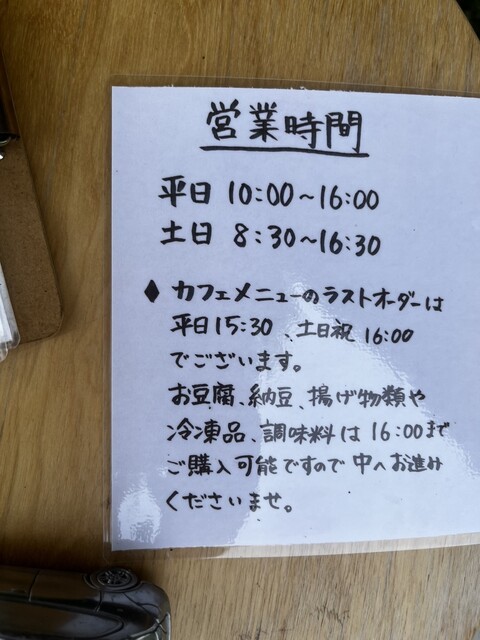 営業時間
平日 10:00～16:00
土日 8:30～16:30
◆ カフェメニューのラストオーダーは
平日15:30、土日祝16:00
でございます。
お豆腐、納豆、揚げ物類や
冷凍品、調味料は16:00まで
ご購入可能ですので中へお進み
くださいませ。